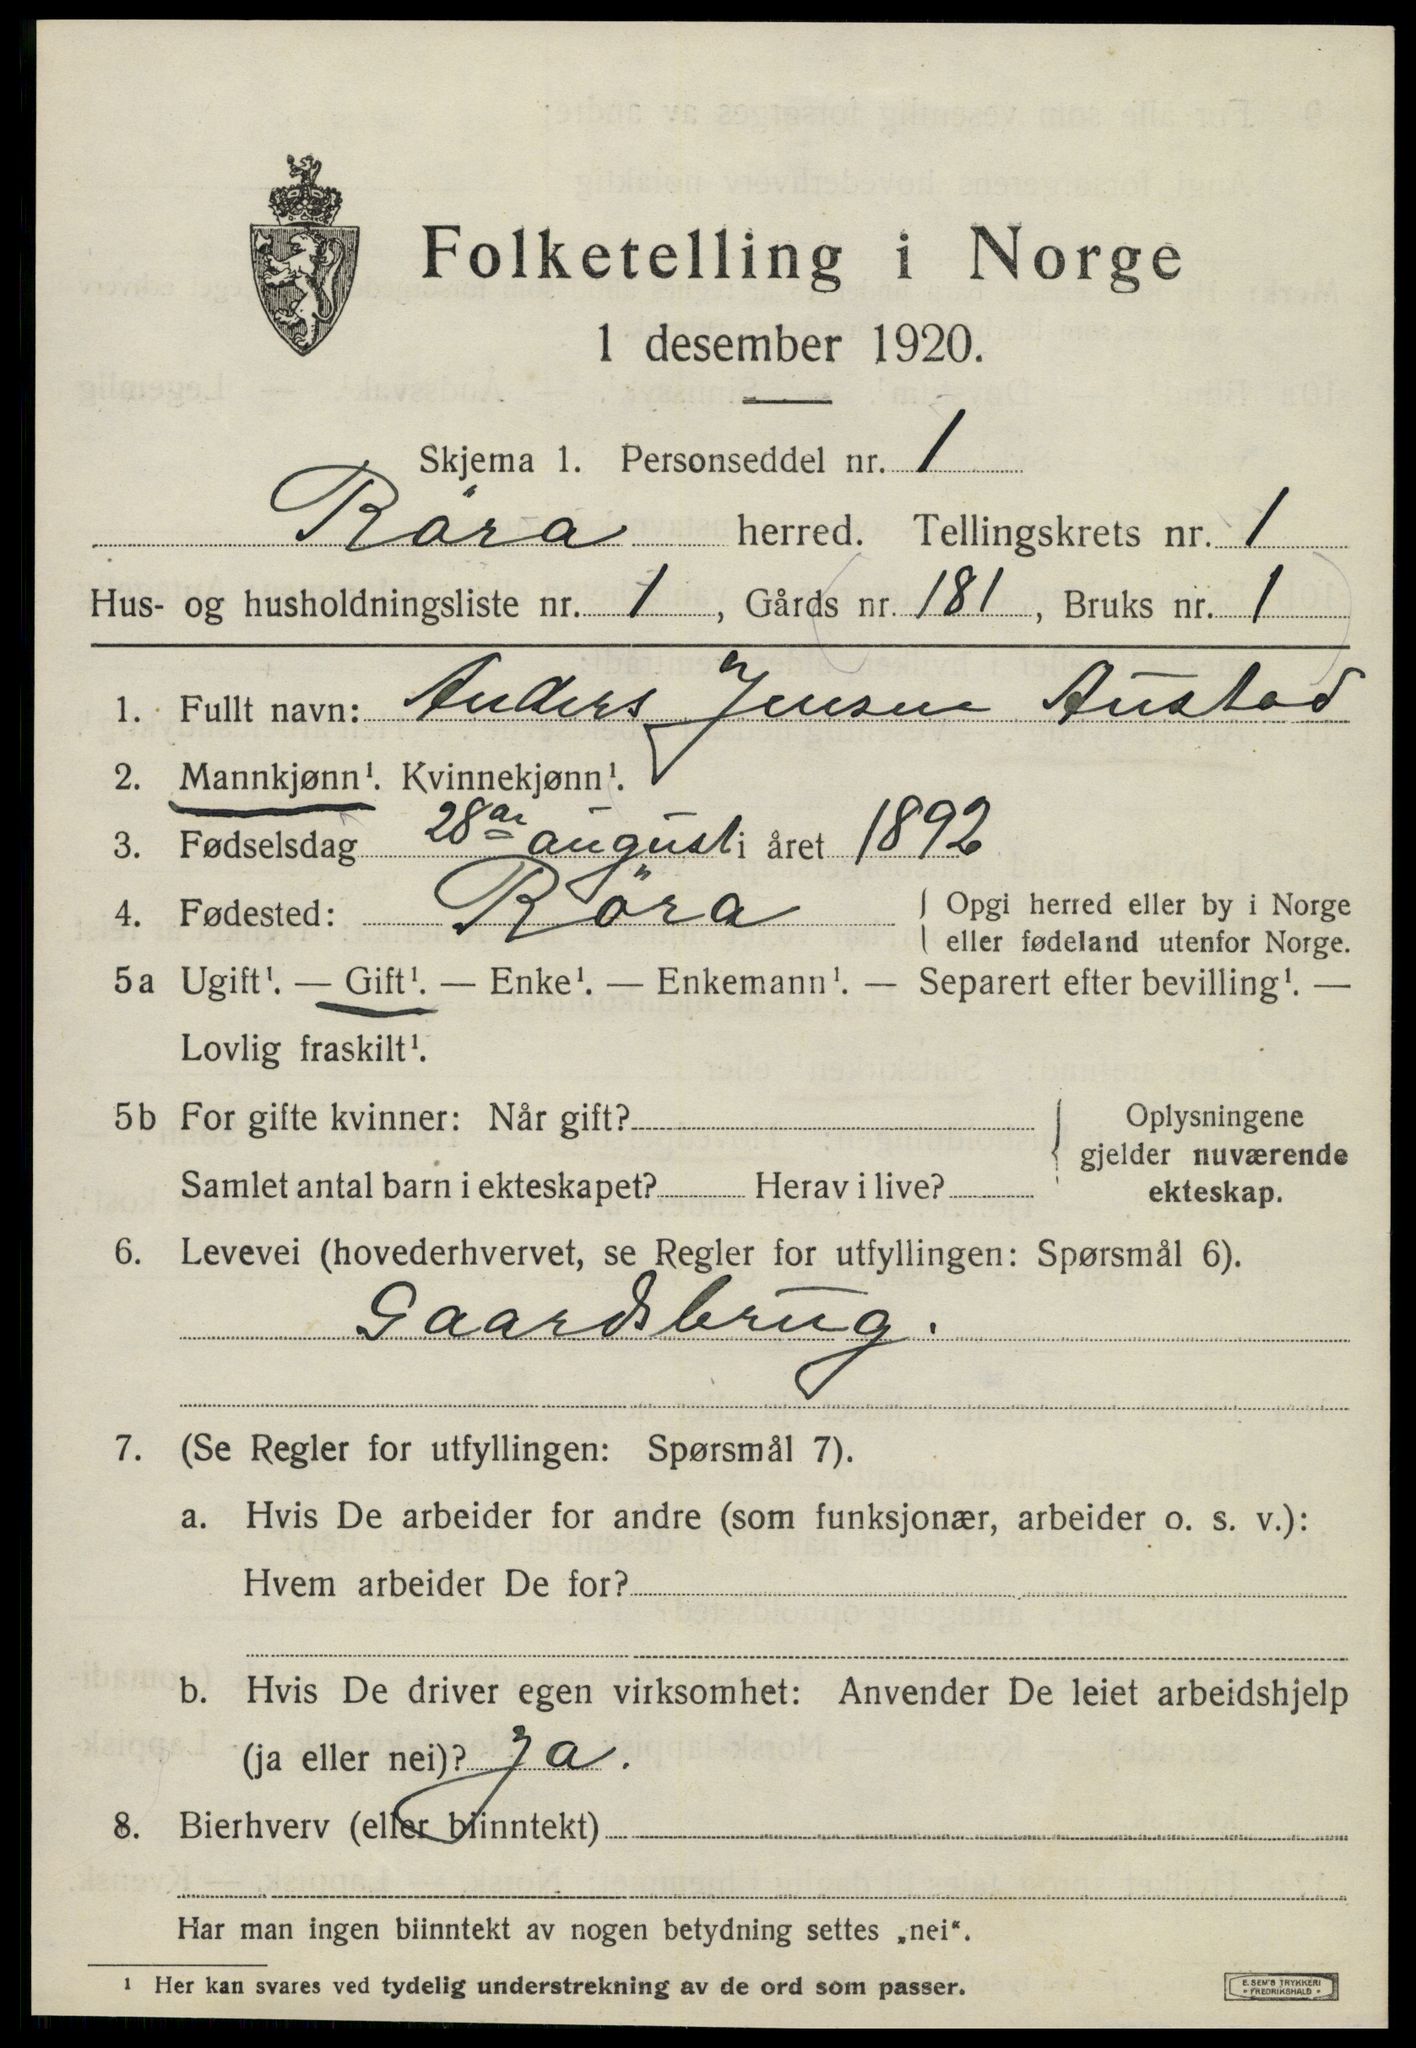 Folketelling i Norge
1 desember 1920.
Skjema 1. Personseddel nr. 1
Röra herred. Tellingskrets nr. 1
Hus- og husholdningsliste nr. 1, Gårds nr. 181, Bruks nr. 1
1. Fullt navn: Anders Jensen Austad
2. Mannkjønn¹. Kvinnekjønn¹.
3. Fødselsdag 28de august i året 1892
4. Fødested: Röra { Opgi herred eller by i Norge
eller fødeland utenfor Norge.
5a Ugift¹. — Gift¹. — Enke¹. — Enkemann¹. — Separert efter bevilling¹. —
Lovlig fraskilt¹.
5b For gifte kvinner: Når gift? { Oplysningene
gjelder nuværende
Samlet antal barn i ekteskapet? Herav i live? ekteskap.
6. Levevei (hovederhvervet, se Regler for utfyllingen: Spørsmål 6).
Gaardsbrug.
7. (Se Regler for utfyllingen: Spørsmål 7).
a. Hvis De arbeider for andre (som funksjonær, arbeider o. s. v.):
Hvem arbeider De for?
b. Hvis De driver egen virksomhet: Anvender De leiet arbeidshjelp
(ja eller nei)? Ja.
8. Bierhverv (eller biinntekt)
Har man ingen biinntekt av nogen betydning settes „nei".
¹ Her kan svares ved tydelig understrekning av de ord som passer.
E. SEM'S TRYKKERI
• FREDRIKSHALD •